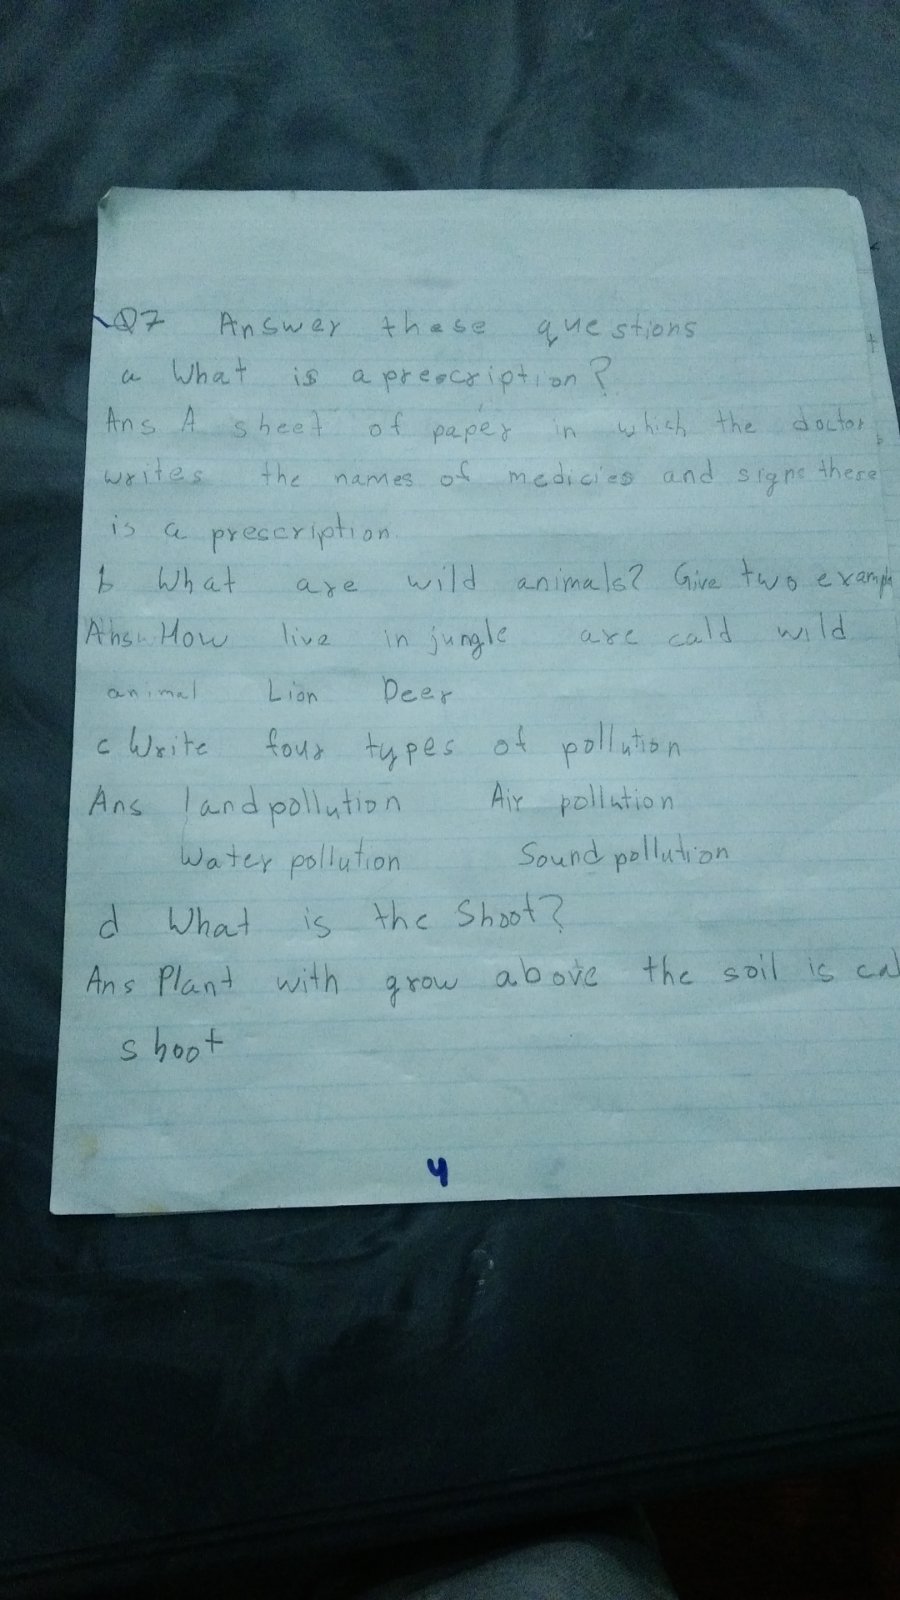 Q7 Answer these questions
a What is a prescription?
Ans A sheet of paper in which the doctor
writes the names of medicies and signs these
is a prescription.
b What are wild animals? Give two exampl
Ans. How live in jungle are cald wild
animal Lion Deer
c Write four types of pollution
Ans land pollution Air pollution
Water pollution Sound pollution
d What is the Shoot?
Ans Plant with grow above the soil is cal
shoot
4